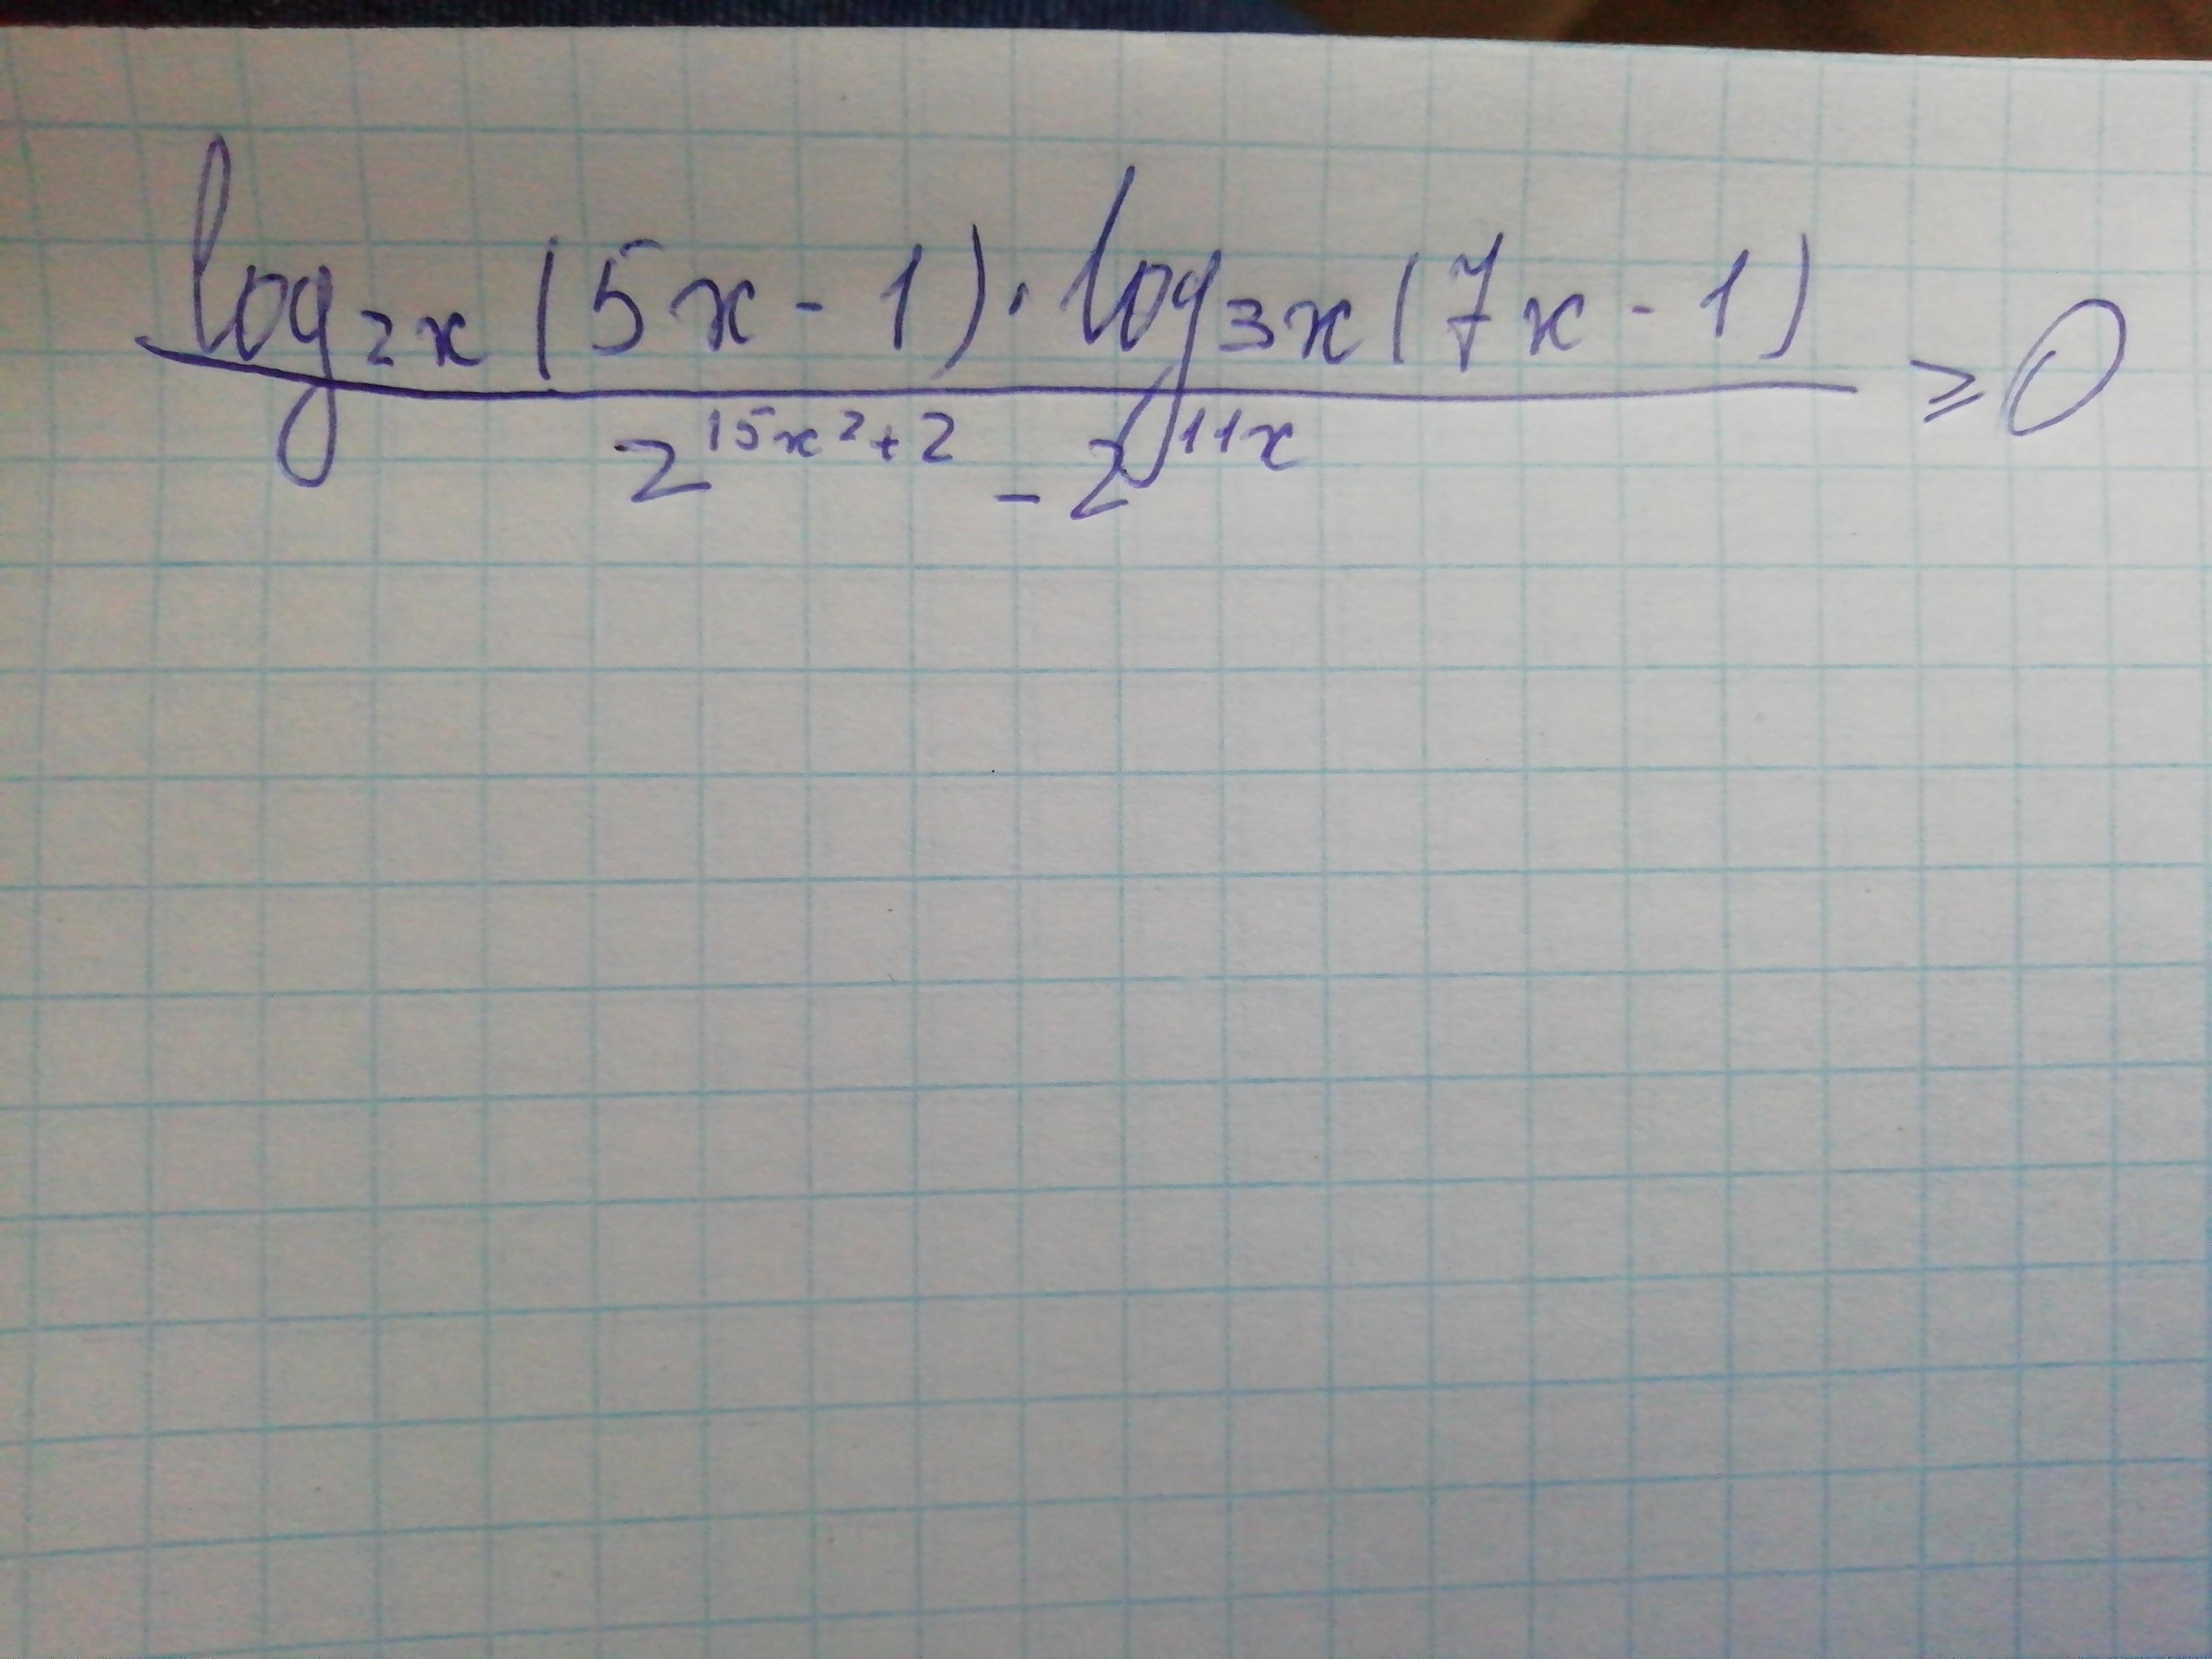 log₂ₓ(5x-1)·log₃ₓ(7x-1)
2^{15x²+2} - 2^{11x} ⩾ 0